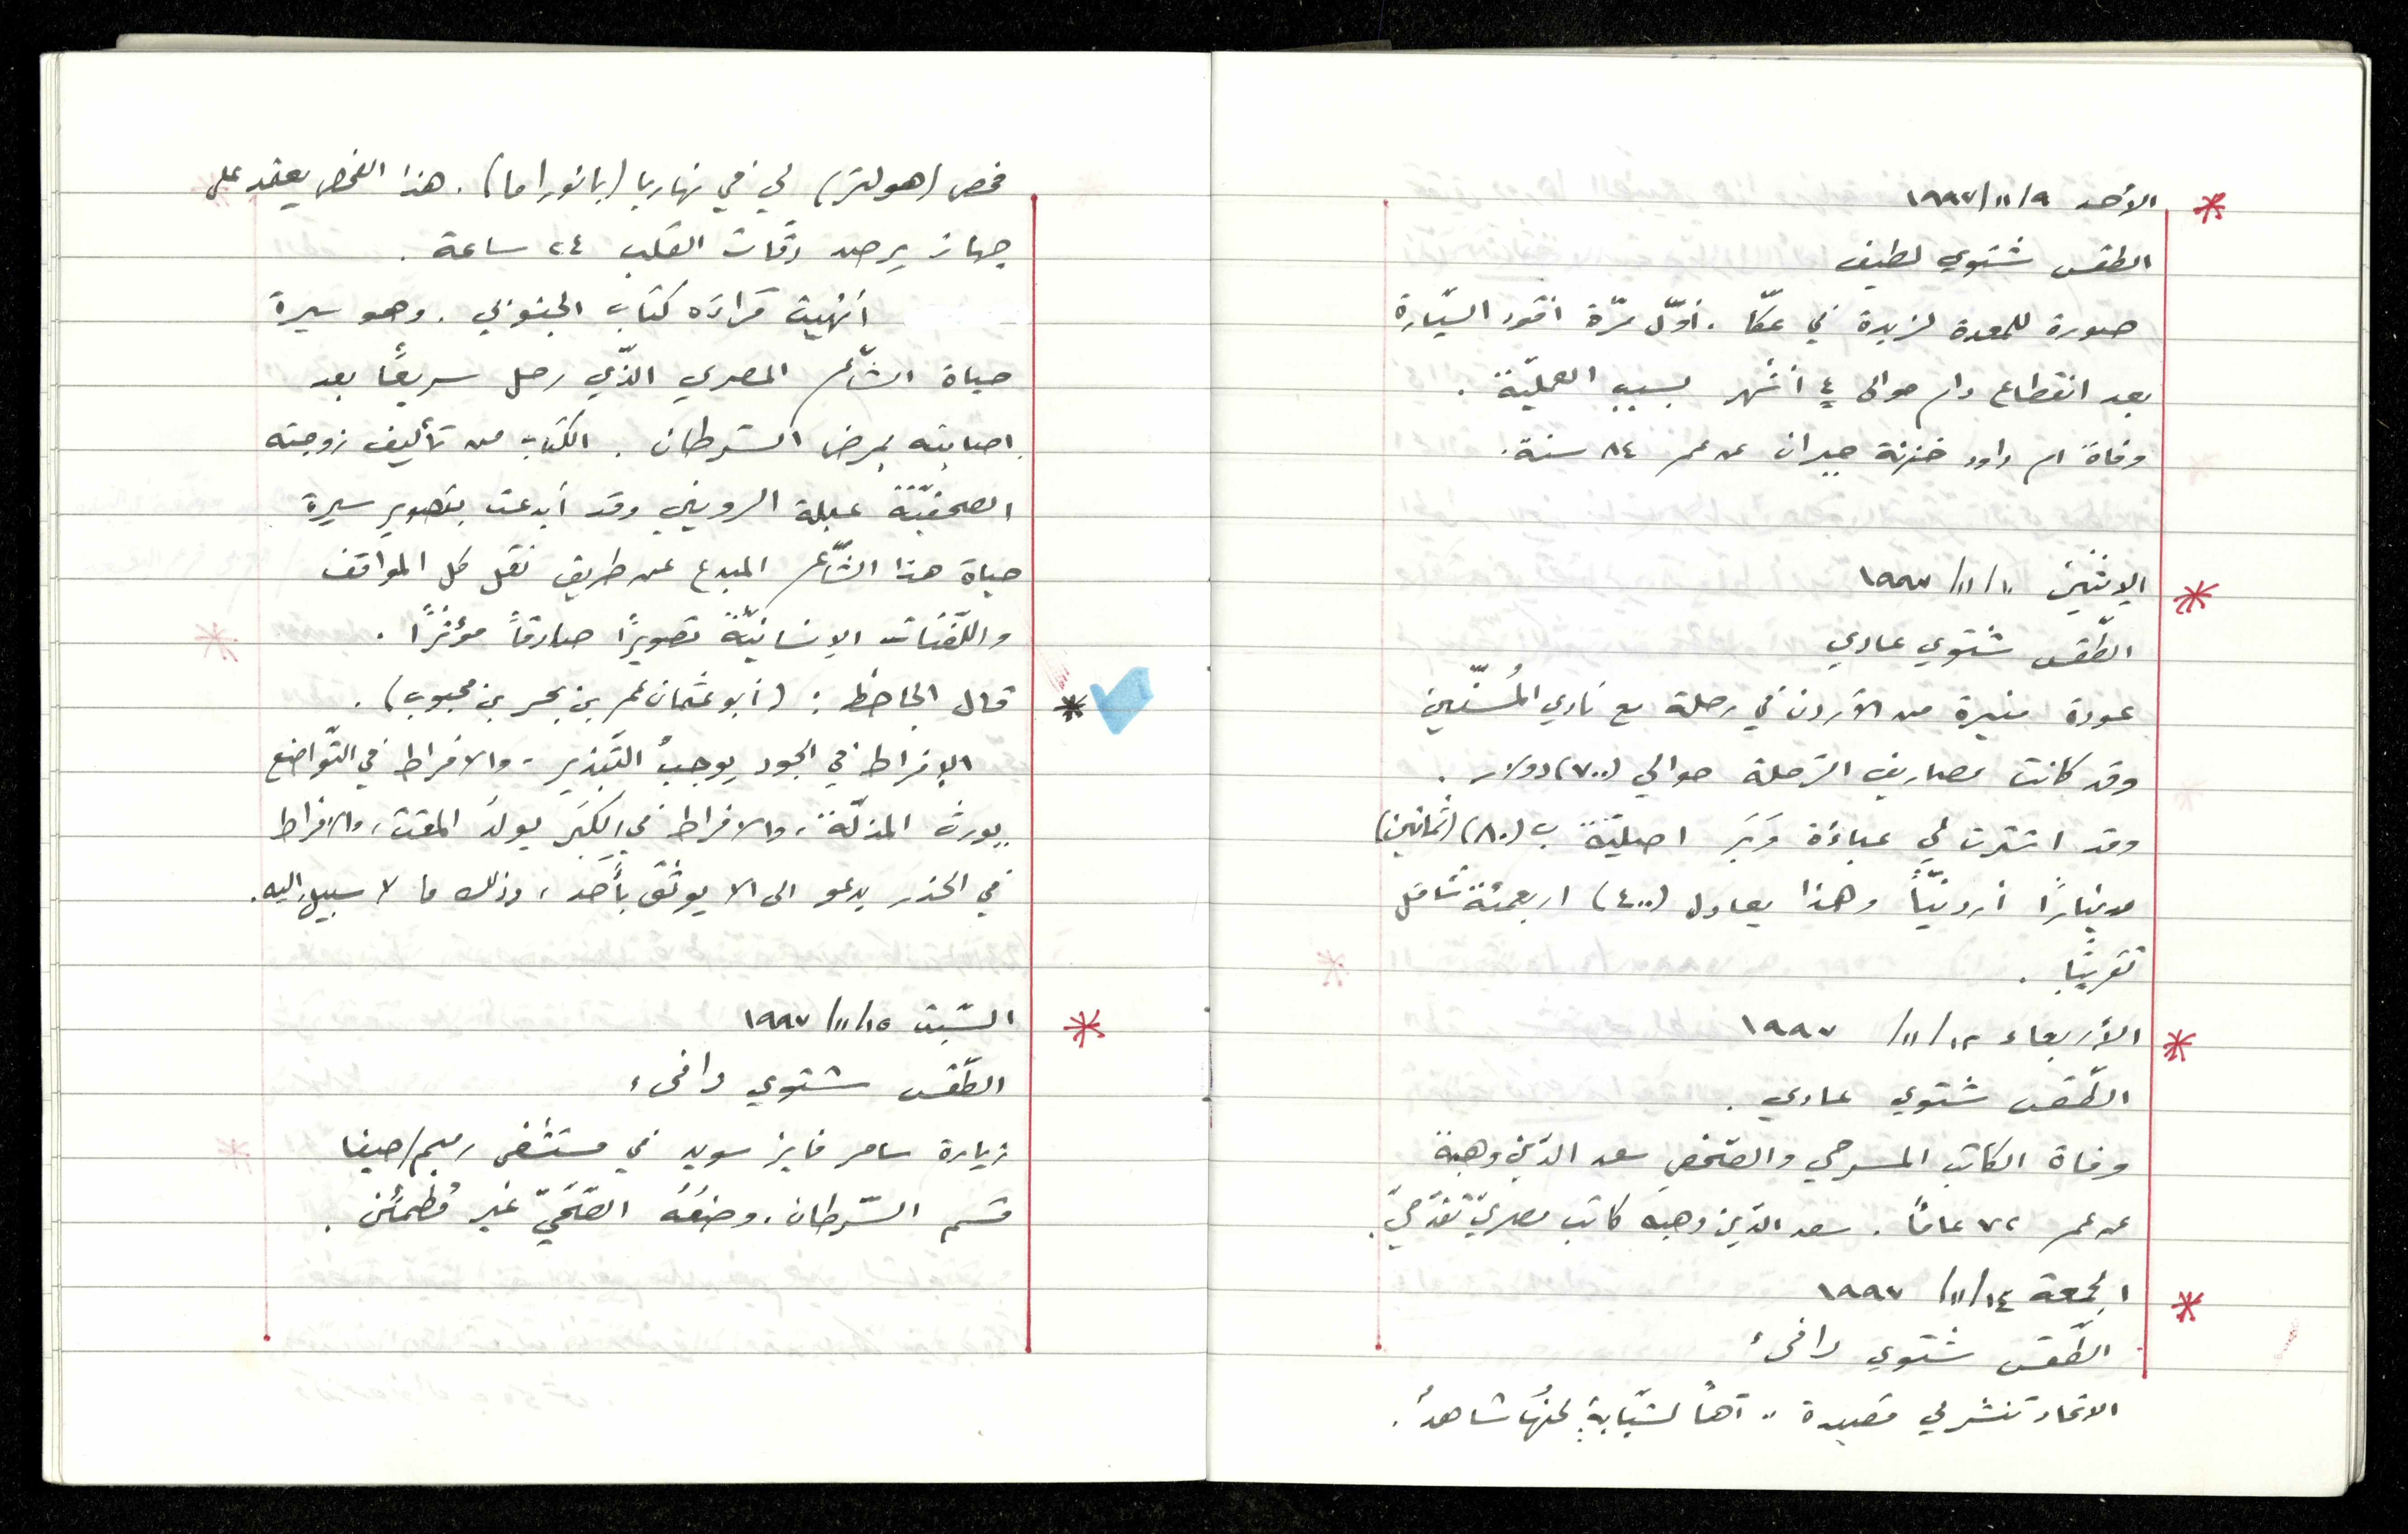 * الأحد ٩/١١/١٩٩٧
الطقس شتوي لطيف
صورة للمعدة لزبيدة في عكّا. أوّل مرّة أقود السيّارة
بعد انقطاع دام حوالي ٤ أشهر بسبب العمليّة.
وفاة ام داود خزنة جبران عن عمر ٨٤ سنة.
* الإثنين ١٠/١١/١٩٩٧
الطّقس شتوي عادي
عودة منيرة من الأردن في رحلة مع نادي المُسنّين
وقد كانت مصاريف الرّحلة حوالي (٧٠٠) دولار.
وقد اشترت لي عباءَة وَبَر اصليّة ب (٨٠) (ثمانين)
دينارًا أردنيًّا وهذا يعادل (٤٠٠) اربعمئة شاقل
تقريبًا.
* الأربعاء ١٢/١١/١٩٩٧
الطّقس شتوي عادي.
وفاة الكاتب المسرحي والصّحفي سعد الدّين وهبة
عن عمر ٧٢ عامًا. سعد الدّين وهبه كاتب مصريّ تقدّميّ.
* الجمعة ١٤/١١/١٩٩٧
الطّقس شتوي دافىء
الاتحاد تنشر لي قصيدة " آهًا لشبّابةٍ لحنُها شاهدُ.
فحص (هولتر) لي في نهاريا (بانوراما). هذا الفحص يعتمد على
جهاز يرصد دقّات القلب ٢٤ ساعة.
أنهيت قراءَة كتاب الجنوبي. وهو سيرة
حياة الشّاعر المصري الذّي رحل سريعًا بعد
اصابته بمرض السّرطان. الكتاب من تأليف زوجته
الصحفيّة عبلة الرويني وقد أبدعت بتصوير سيرة
حياة هذا الشّاعر المبدع عن طريق نقل كل المواقف
واللّفتات الإنسانيّة تصويرًا صادقاً مؤثرًا.
* قال الجاحظ: (أبو عثمان عمر بن بحر بن محبوب).
الإفراط في الجود يوجبُ التّبذير، والافراط في التّواضع
يورث المذلّة، والافراط في الكبَر يولدُ المقت، والافراط
في الحذر يدعو الى الا يوثق بأحَد، وذلك ما لا سبيل إليه.
* السّبت ١٥/١١/١٩٩٧
الطّقس شتوي دافىء
زيارة سامر فايز سويد في مستشفى رمبم/حيفا
قسم السّرطان. وضعُهُ الصّحّيّ غير مُطمئن.